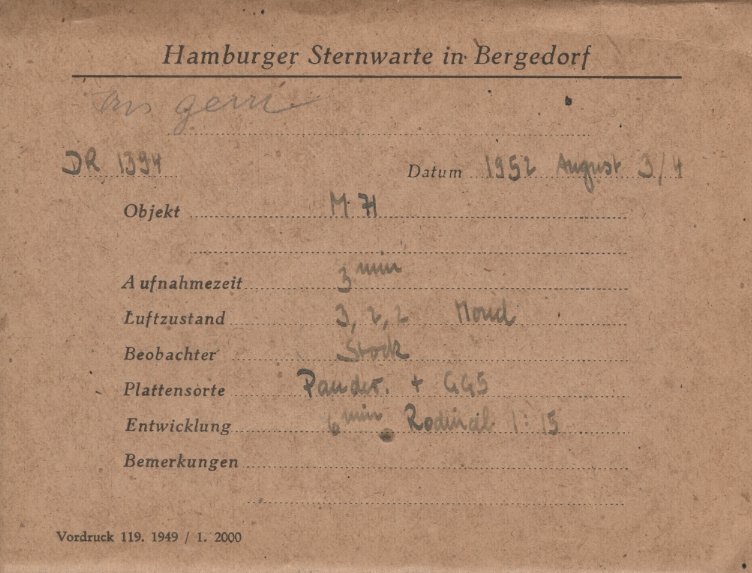 Hamburger Sternwarte in Bergedorf
DR 1394 Datum 1952 August 3/4
Objekt M 71
Aufnahmezeit 3 min
Luftzustand 3, 2, 2 Mond
Beobachter Stock
Plattensorte + GG5
Entwicklung 6 min Rodinal 1:15
Bemerkungen
Vordruck 119. 1949 / 1. 2000